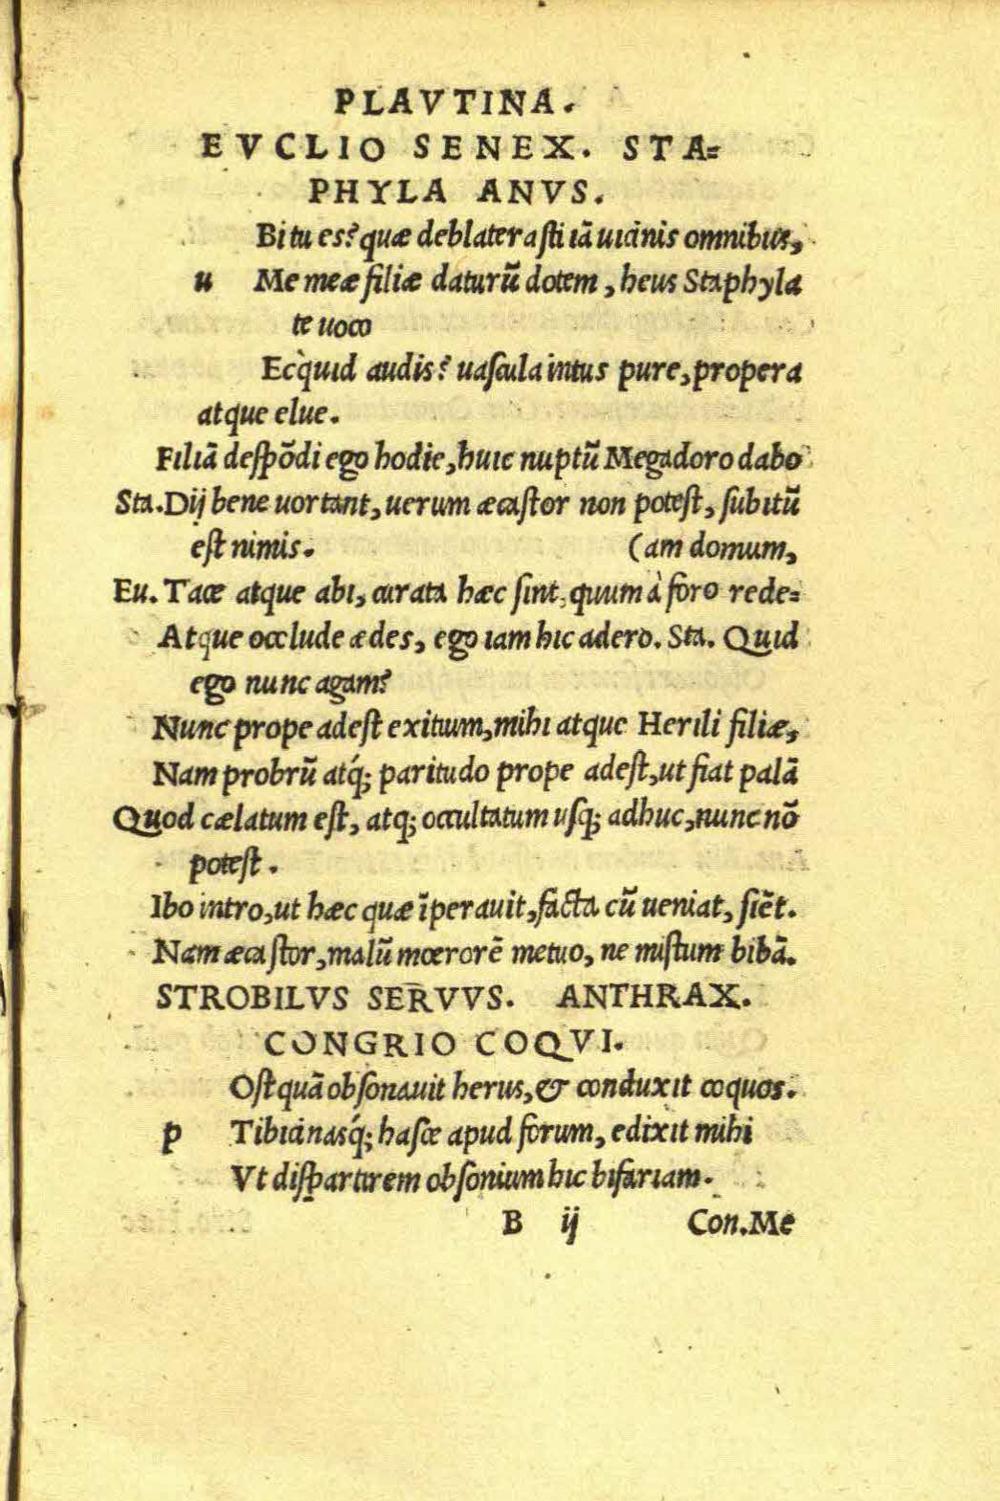 PLAVTINA.
EVCLIO SENEX. STA=
PHYLA ANVS.
Bi tu es? quæ deblaterasti iã uicinis omnibus,
u Me meæ filiæ daturũ dotem, heus Staphyla
te uoco
Ecquid audis? uascula intus pure, propera
atque elue.
Filiã despõdi ego hodie, huic nuptũ Megadoro dabo
Sta. Dij bene uortant, uerum æcastor non potest, subitũ
est nimis. (am domum,
Eu. Tace atque abi, curata hæc sint, quum à foro rede=
Atque occlude ædes, ego iam hic adero. Sta. Quid
ego nunc agam?
Nunc prope adest exitium, mihi atque Herili filiæ,
Nam probrũ atq́; paritudo prope adest, ut fiat palã
Quod cælatum est, atq; occultatum usq; adhuc, nunc nõ
potest.
Ibo intro, ut hæc quæ ĩperauit, facta cũ ueniat, siẽt.
Nam æcastor, malũ mœrorẽ metuo, ne mistum bibã.
STROBILVS SERVVS. ANTHRAX.
CONGRIO COQVI.
Ostquã obsonauit herus, & conduxit coquos.
p Tibicinasq́; hasce apud forum, edixit mihi
Vt dispartirem obsonium hic bifariam.
B ij Con. Me